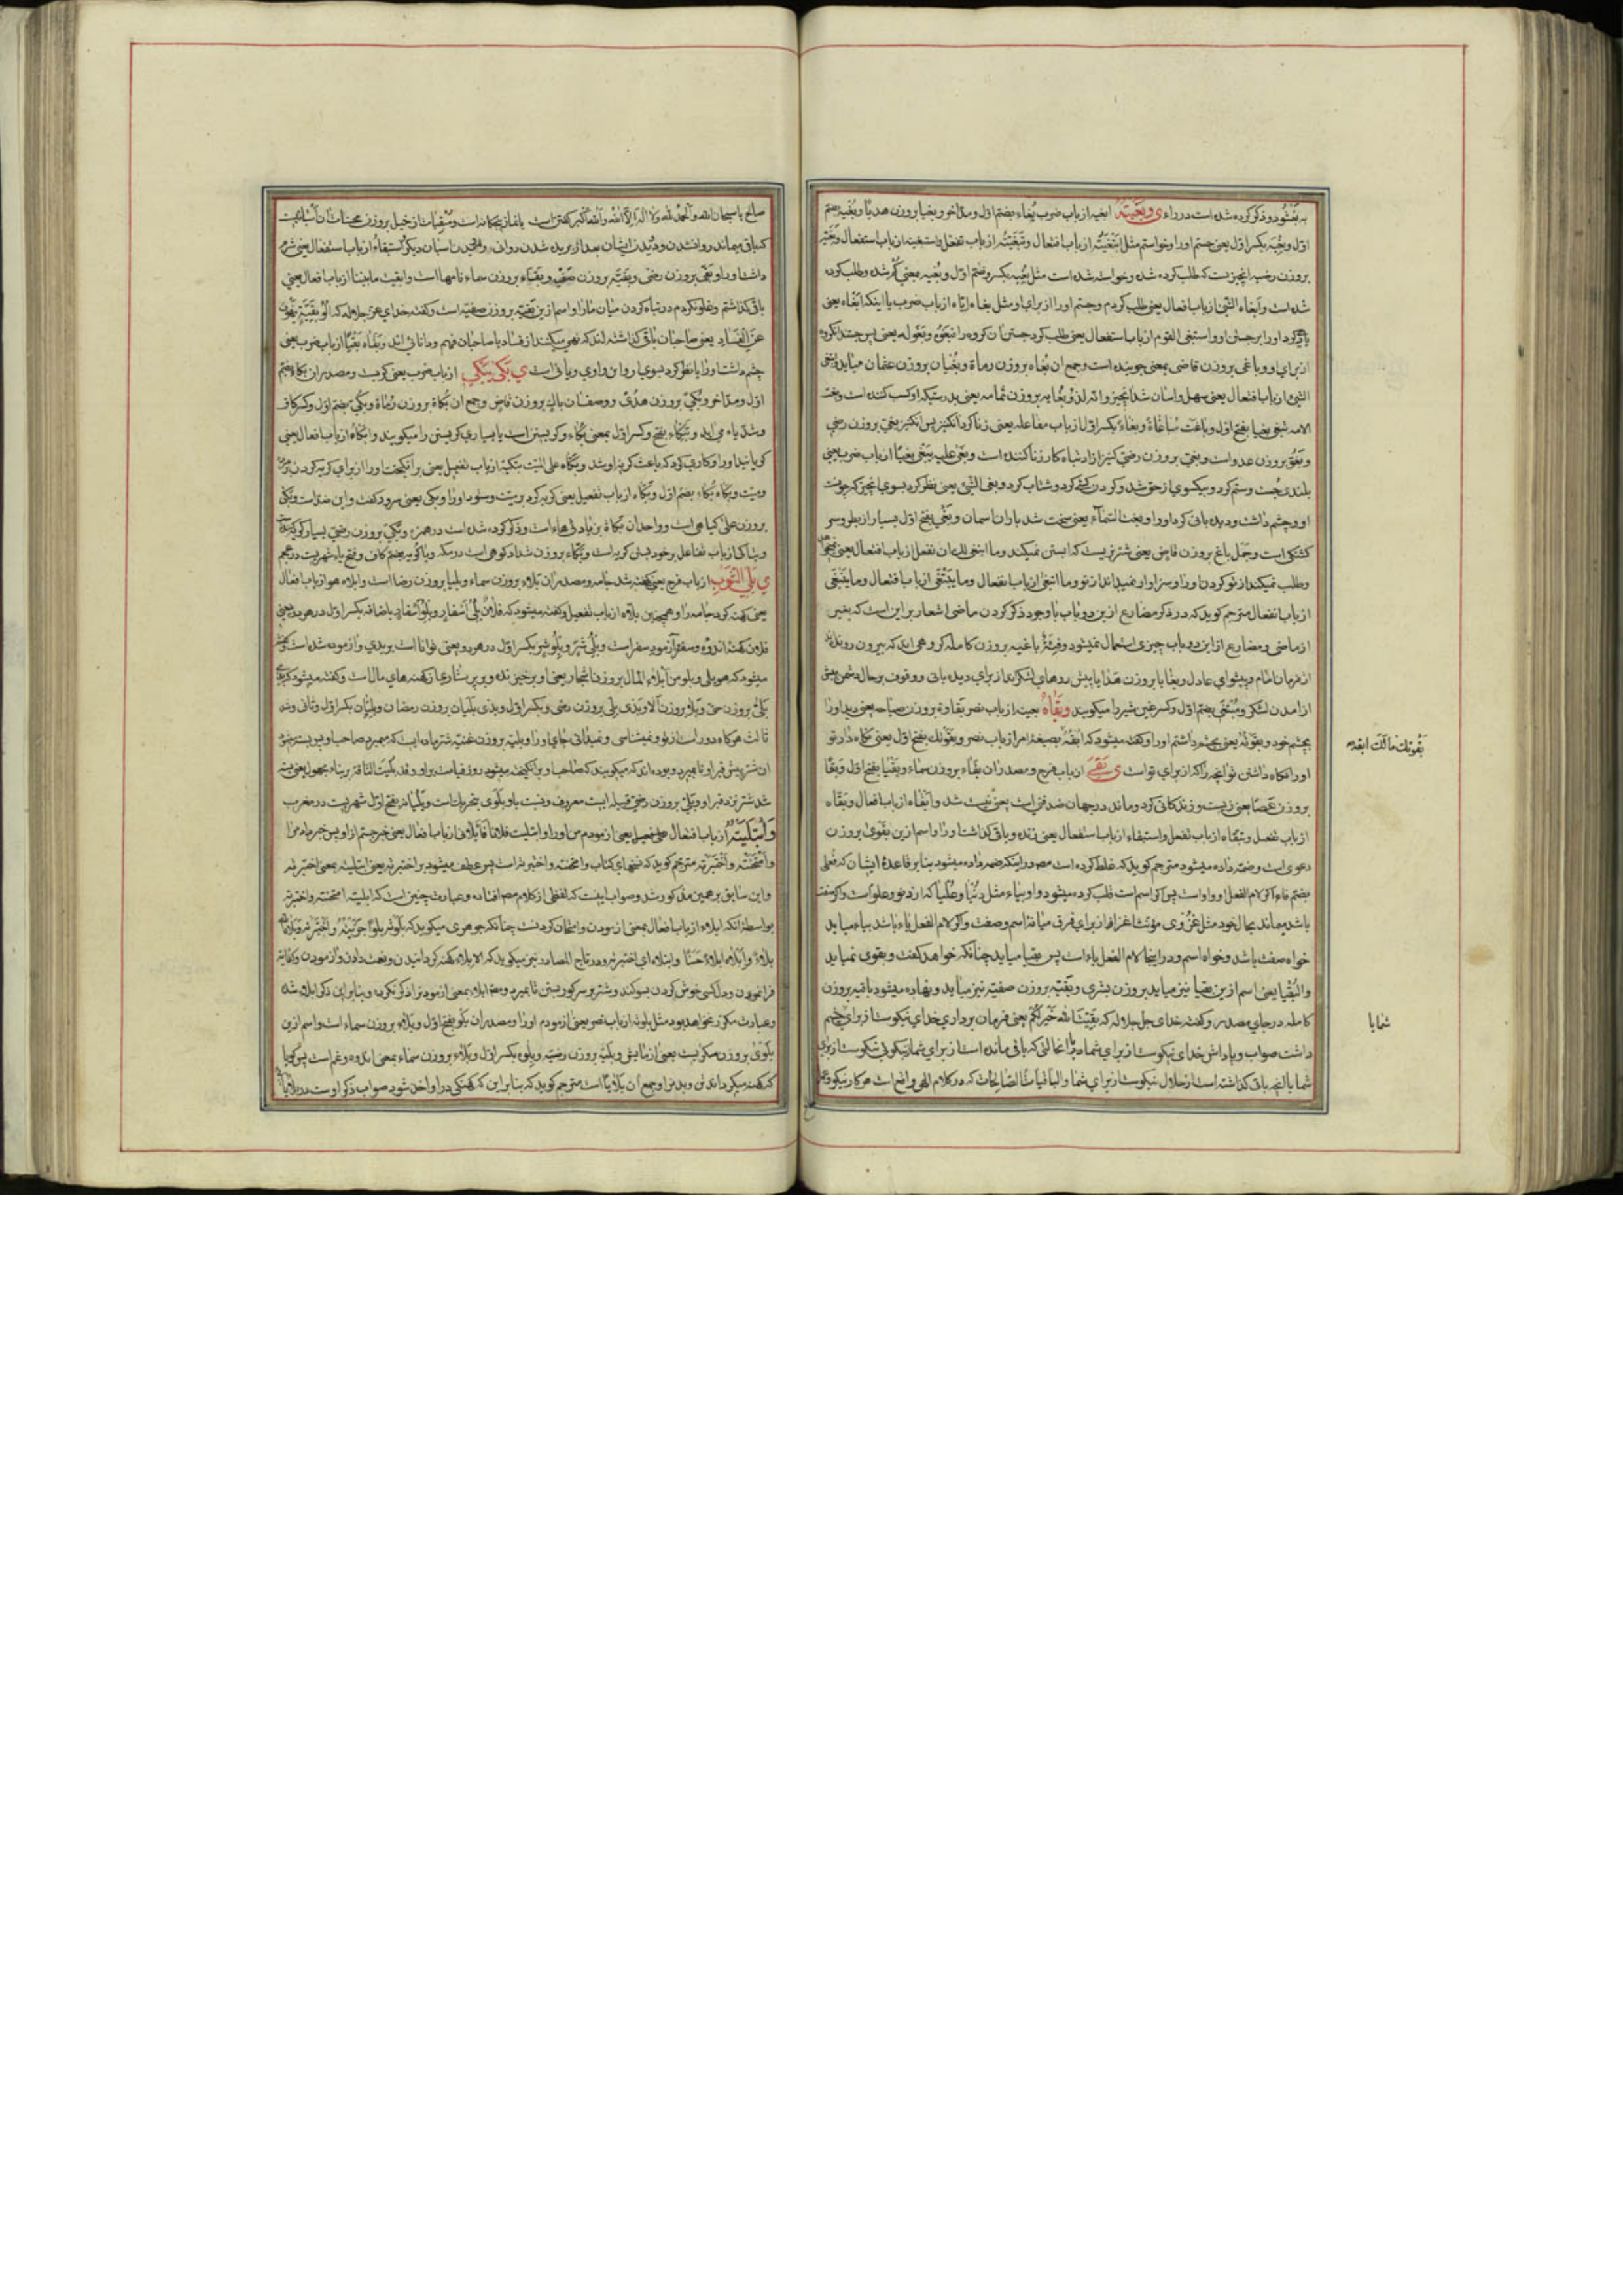 به بغثود و ذکر کرده شده است در راء ی وبغیته ابغیه از باب ضرب بُغاء بضم اول و مد آخر و بغیا بروزن هدیا و بُغیه بضم
اول و بغیه بکسر اول یعنی جستم او را و خواستم مثل ابتغیته از باب افتعال و تبغیته از باب تفعل و استبغیته از باب استفعال و
بروزن رضیه انچیزیست که طلب کرده شده و خواسته شده است مثل بغیه بکسر و ضم اول و بغیه بمعنی گم شده و طلب کرده
شده است و ابغاه الشئ از باب افعال یعنی طلب کردم و جستم او را از برای او مثل بغاه ایاه از باب ضرب یا اینکه ابغاه یعنی
یاری کرد او را بر جستن او و استبغی القوم از باب استفعال یعنی طلب کرد جستن آن گروه را فبغوه و بغوا له یعنی پس جستند آن گروه
از برای او و باغی بروزن قاضی بمعنی جوینده است و جمع ان بغاه بروزن رماة و بغیان بروزن عثمان میاید
الشئ از باب انفعال یعنی سهل و اسان شد آنچیز و انه لذو بغایه بروزن ثمامه یعنی بدرستیکه او کسب کننده است و بغت
الامه تبغی بغیا بفتح اول و باغت مباغاة و بغاء بکسر اول از باب مفاعله یعنی زنا کرد آن کنیز پس آن کنیز بغی بروزن رضی
و بغو بروزن عدو است و بغی بروزن رضی کنیز ازاد تباه کار زنا کننده است و بغی علیه یبغی بغیا از باب ضرب یعنی
بلندی جست و ستم کرد و بیکسوی از حق شد و گردن کشی کرد و شتاب کرد و بغی الشئ یعنی نظر کرد بسوی انچیز که چونست
او و چشم داشت و دیده بانی کرد او را و بغت السماء یعنی سخت شد باران اسمان و بغی بفتح اول بسیار از بطر و سر
کشتگی است و جمل باغ بروزن قاض یعنی شتریست که ابستن نمیکند و ما انبغی لک ان تفعل از باب انفعال یعنی
و طلب نمیکند از تو کردن او را و سزاوار نمیداند از تو و ما ابتغی از باب افتعال و ما ینبغی از باب انفعال و ما یبتغی
از باب انفعال مترجم گوید که در ذکر مضارع از این دو باب با وجود ذکر کردن ماضی اشعار بر این است که بغیر
از ماضی و مضارع از این دو باب چیزی استعمال نمیشود و فئة باغیه بروزن کامله گروهی اند که بیرون روند
از فرمان امام و پیشوای عادل و بغایا بروزن هدایا پیش روهای لشکراند از برای دیده بانی و وقوف بر حال دشمن پیش
از امدن لشکر و مبتغی بضم اول و کسر غین شیر را میگویند و بقاه بعینه از باب نصر بقاوة بروزن صباحه یعنی دید او را
بچشم خود و بقوته یعنی بچشم داشتم او را و گفته میشود که ابقه بصیغه امر از باب نصر و بقوتک بفتح اول یعنی نگاه دار تو
او را نگاه داشتن تو انچه را که از برای تو است ی بقی از باب فرح و مصدر ان بقاء بروزن سماء و بقیا بفتح اول و بقا
بروزن عصا یعنی زیست و زندگانی کرد و ماند در جهان ضد فنی است یعنی نیست شد و ابقاه از باب افعال و بقاه
از باب تفعیل و تبقاه از باب تفعل و استبقاه از باب استفعال یعنی زنده و باقی گذاشت او را و اسم ازین بقوی بروزن
دعوی است و ضمه داده میشود مترجم گوید که غلط کرده است مصدر اینکه ضمه داده میشود بنا بر قاعده ایشان که فعلی
بضم فاء اگر لام الفعل او واو است پس اگر اسم است قلب کرده میشود واو بیاء مثل دنیا و علیا که از دنو و علو است و اگر صفت
باشد میماند بحال خود مثل غزوی مؤنث اغزا از برای فرق میانه اسم و صفت و اگر لام الفعل یاء باشد بیاء میاید
خواه صفت باشد و خواه اسم و در اینجا لام الفعل یاء است پس بقیا میاید چنانکه خواهد گفت و بقوی نمیاید
والبقیا یعنی اسم ازین بقیا نیز میاید بروزن بشری و بقیه بروزن صفیه نیز میاید و نهاده میشود باقیه بروزن
کامله در جای مصدر و گفته خدای جل جلاله که بقیة الله خیر لکم یعنی فرمان برداری خدای نیکوست از برای چشم
داشت صواب و پاداش خدای نیکوست از برای شما و یا انحالتی که باقی مانده است از برای شما از نیکوئی نیکوست از برای
شما یا انچه باقی گذاشته است از حلال نیکوست از برای شما و الباقیات الصالحات که در کلام الهی واقع است هر کار نیکو
بقوتک مالک ابقه
شما یا
صالح یا سبحان الله و الحمد لله و لا اله الا الله و الله اکبر گفتن است یا نماز پنجگانه است و مبقیات از خیل بروزن محسنات ان اسبانیست
که باقی میماند روانشدن و دویدن ایشان بعد از بریده شدن روانی و دویدن اسبان دیگر و استبقاه از باب استفعال یعنی شرم
داشت او را و بقی بروزن رضی و بقیه بروزن صفیه و بقاء بروزن سماء نامها است و ابقیت ما بیننا از باب افعال یعنی
باقی گذاشتم و غلو نکردم در تباه کردن میان ما را و اسم ازین بقیه بروزن صفیه است و گفته خدای عز جلاله که اولو بقیة ینهون
عن الفساد یعنی صاحبان باقی گذاشته اند که نهی میکنند از فساد یا صاحبان فهم و دانائی اند و بقاه بقیا از باب ضرب یعنی
چشم داشت او را یا نظر کرد بسوی او و این واوی و یائی است ی بکی یبکی از باب ضرب یعنی گریست و مصدر ان بکاء بضم
اول و مد آخر و بکی بروزن هدی و وصف ان باک بروزن قاض و جمع ان بکاة بروزن رماة و بکی بضم اول و کسر کاف
و شد یاء می اید و تبکاء بفتح و کسر اول بمعنی بکاء و گریستن است یا بسیاری گریستن را میگویند و ابکاه از باب افعال یعنی
گریانید او را و کاری کرد که باعث گریه او شد و بکاه علی المیت تبکیة از باب تفعیل یعنی برانگیخت او را از برای گریه کردن بر
میت و بکاه بکاء بضم اول و بکاه از باب تفعیل یعنی گریه کرد بر میت و ستود او را و بکی یعنی سرود گفت و این ضد است و بکی
بروزن علی گیاهی است و واحد ان بکاة بزیادتی هاء است و ذکر کرده شده است در همزه و بکی بروزن رضی بسیار گریه
و تباکی از باب تفاعل بر خود بستن گریه است و بکاء بروزن شداد کوهی است در مکه و باکویه بضم کاف و فتح یاء شهریست در عجم
ی بلی الثوب از باب فرح یعنی کهنه شد جامه و مصدر ان بلاء بروزن سماء و بلیا بروزن رضا است و ابلاه هو از باب افعال
یعنی کهنه کرد جامه را و همچنین بلاه از باب تفعیل و گفته میشود که فلان بلی اسفار و بلو اسفار باضافه بکسر اول در هر دو یعنی
فلان کهنه اندوه و سفر و آزموده سفر است و بلی شر و بلو شر بکسر اول در هر دو یعنی توانا است بر بدی و ازموده شده است
میشود که هو بلی و بلو من ابلاء المال بروزن اشجار یعنی او برخیزنده و برپرستاری از کهنه های مال است و گفته میشود که
بلی بروزن حتی و بلا بروزن الا و بذی بلی بروزن رضی و بکسر اول و بذی بلیان بروزن رمضان و بلیان بکسر اول و ثانی و شد
ثالث هرگاه دور است از تو و نمیشناسی و نمیدانی جای او را و بلیه بروزن غنیه شتر ماده ایست که میمیرد صاحب او پس بسته میشود
ان شتر پیش قبر او تا بمیرد و بوده اند که میگویند که صاحب او برانگیخته میشود روز قیامت بر او و قد بلیت الناقة بر بناء مجهول یعنی بسته
شد شتر نزد قبر او و بلی بروزن رضی قبیله ایست معروف و نسبت باو بلوی بتحریک است و بلیانه بفتح اول شهریست در مغرب
وابتلیته از باب افتعال یعنی ازمودم من او را و ابتلیت فلانا فابلانی از باب افعال یعنی خبر جستم از او پس خبر داد مرا
و امتحنته و اختبرته مترجم گوید که نسخهای کتاب و امتحنته و اختبرته است پس عطف میشود بر اختبرته یعنی ابتلیته بمعنی اختبرته
و این سابق بر همین مذکور شد و صواب اینست که لفظی از کلام مصه افتاده و عبارت چنین است که ابلیته امتحنته و اختبرته
بواسطه آنکه ابلاء از باب افعال بمعنی ازمودن و امتحان کردنست چنانکه جوهری میگوید که بلوته بلوا جربته و اختبرته و بلاه
بلاء و ابلاه ابلاء حسنا و ابتلاه ای اختبره و در تاج المصادر نیز میگوید که الابلاء کهنه گردانیدن و نعمت دادن و ازمودن و کفایة
فرانمودن و دل کسی خوش کردن بسوگند و شتر بر سر گور بستن تا بمیرد و مصه ابلاء بمعنی ازمودن را ذکر نکرده و بنابراین ذکر ابلاء شده
و عبارت مکرر نخواهد بود مثل بلوته از باب نصر یعنی ازمودم او را و مصدر ان بلو بفتح اول و بلاء بروزن سماء است و اسم ازین
بلوی بروزن سکریست بمعنی ازمایش و بلیه بروزن رضیه و بلوه بکسر اول و بلاء بروزن سماء بمعنی اندوه و غم است پس گویا
که کهنه میگرداند تن و بدن را و جمع ان بلایا است مترجم گوید که بنا بر این که کهنگی در او اخذ شود صواب ذکر اوست در